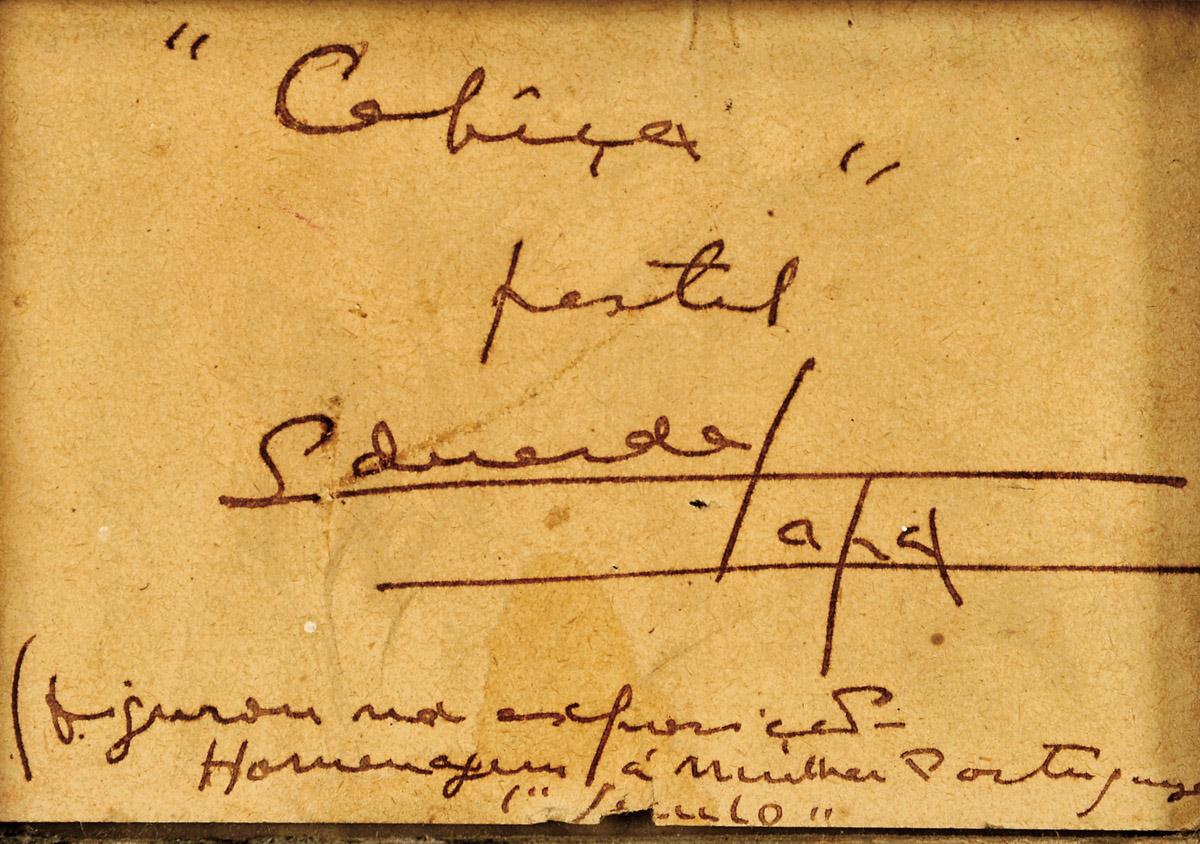 "Cobiça"
pastel
Eduarda
Lapa
(figurou na exposição
Homenagem á Mulher Portuguesa
("Seculo"